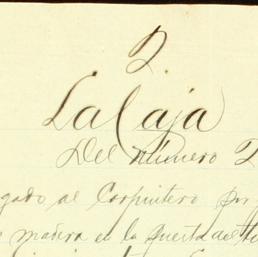 2.
La Caja
Del número 2
gado al Carpintero por
madera en la puerta del